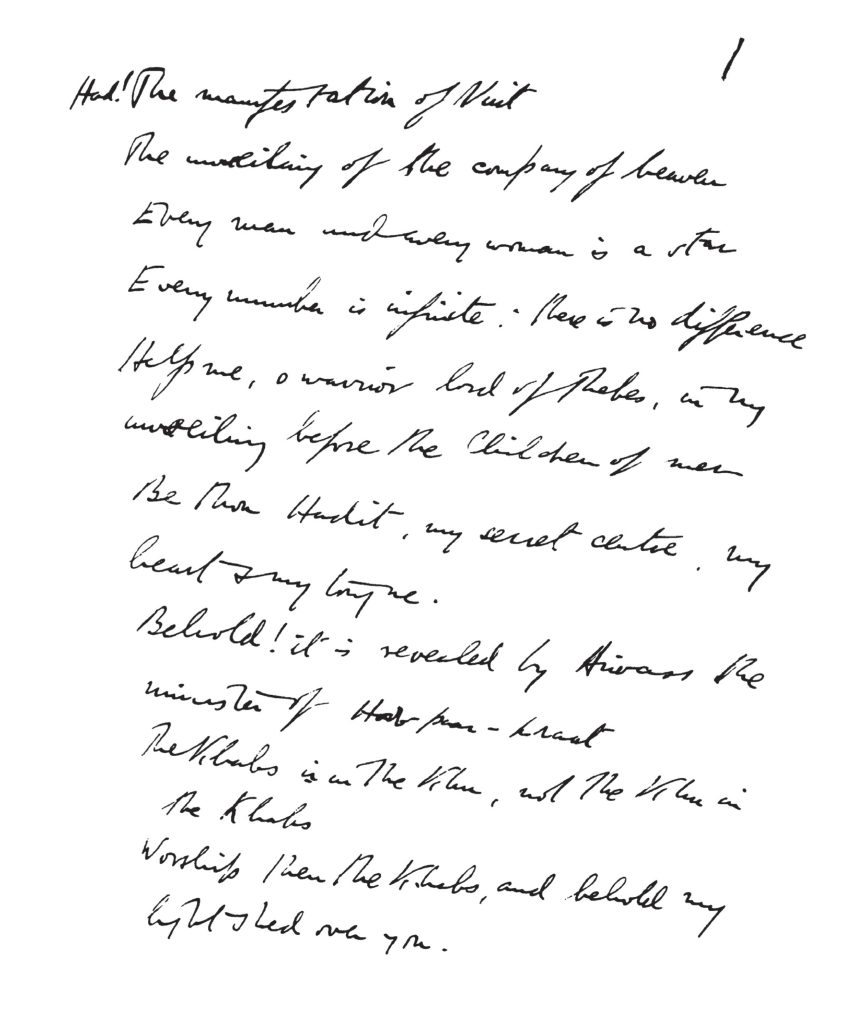 1
Had! The manifestation of Nuit
The unveiling of the company of heaven
Every man and every woman is a star
Every number is infinite: there is no difference
Help me, o warrior lord of Thebes, in my
unveiling before the Children of men
Be thou Hadit, my secret centre, my
heart & my tongue.
Behold! it is revealed by Aiwass the
minister of Hoor-paar-kraat
The Khabs is in the Khu, not the Khu in
the Khabs
Worship then the Khabs, and behold my
light shed over you.